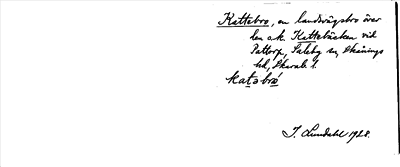 Kattebro, en landsvägsbro över
den s.k. Kattebäcken vid
Pattorp, Saleby sn, Skånings
hd, Skarab. l.
Katəbro
I. Lundahl 1928.